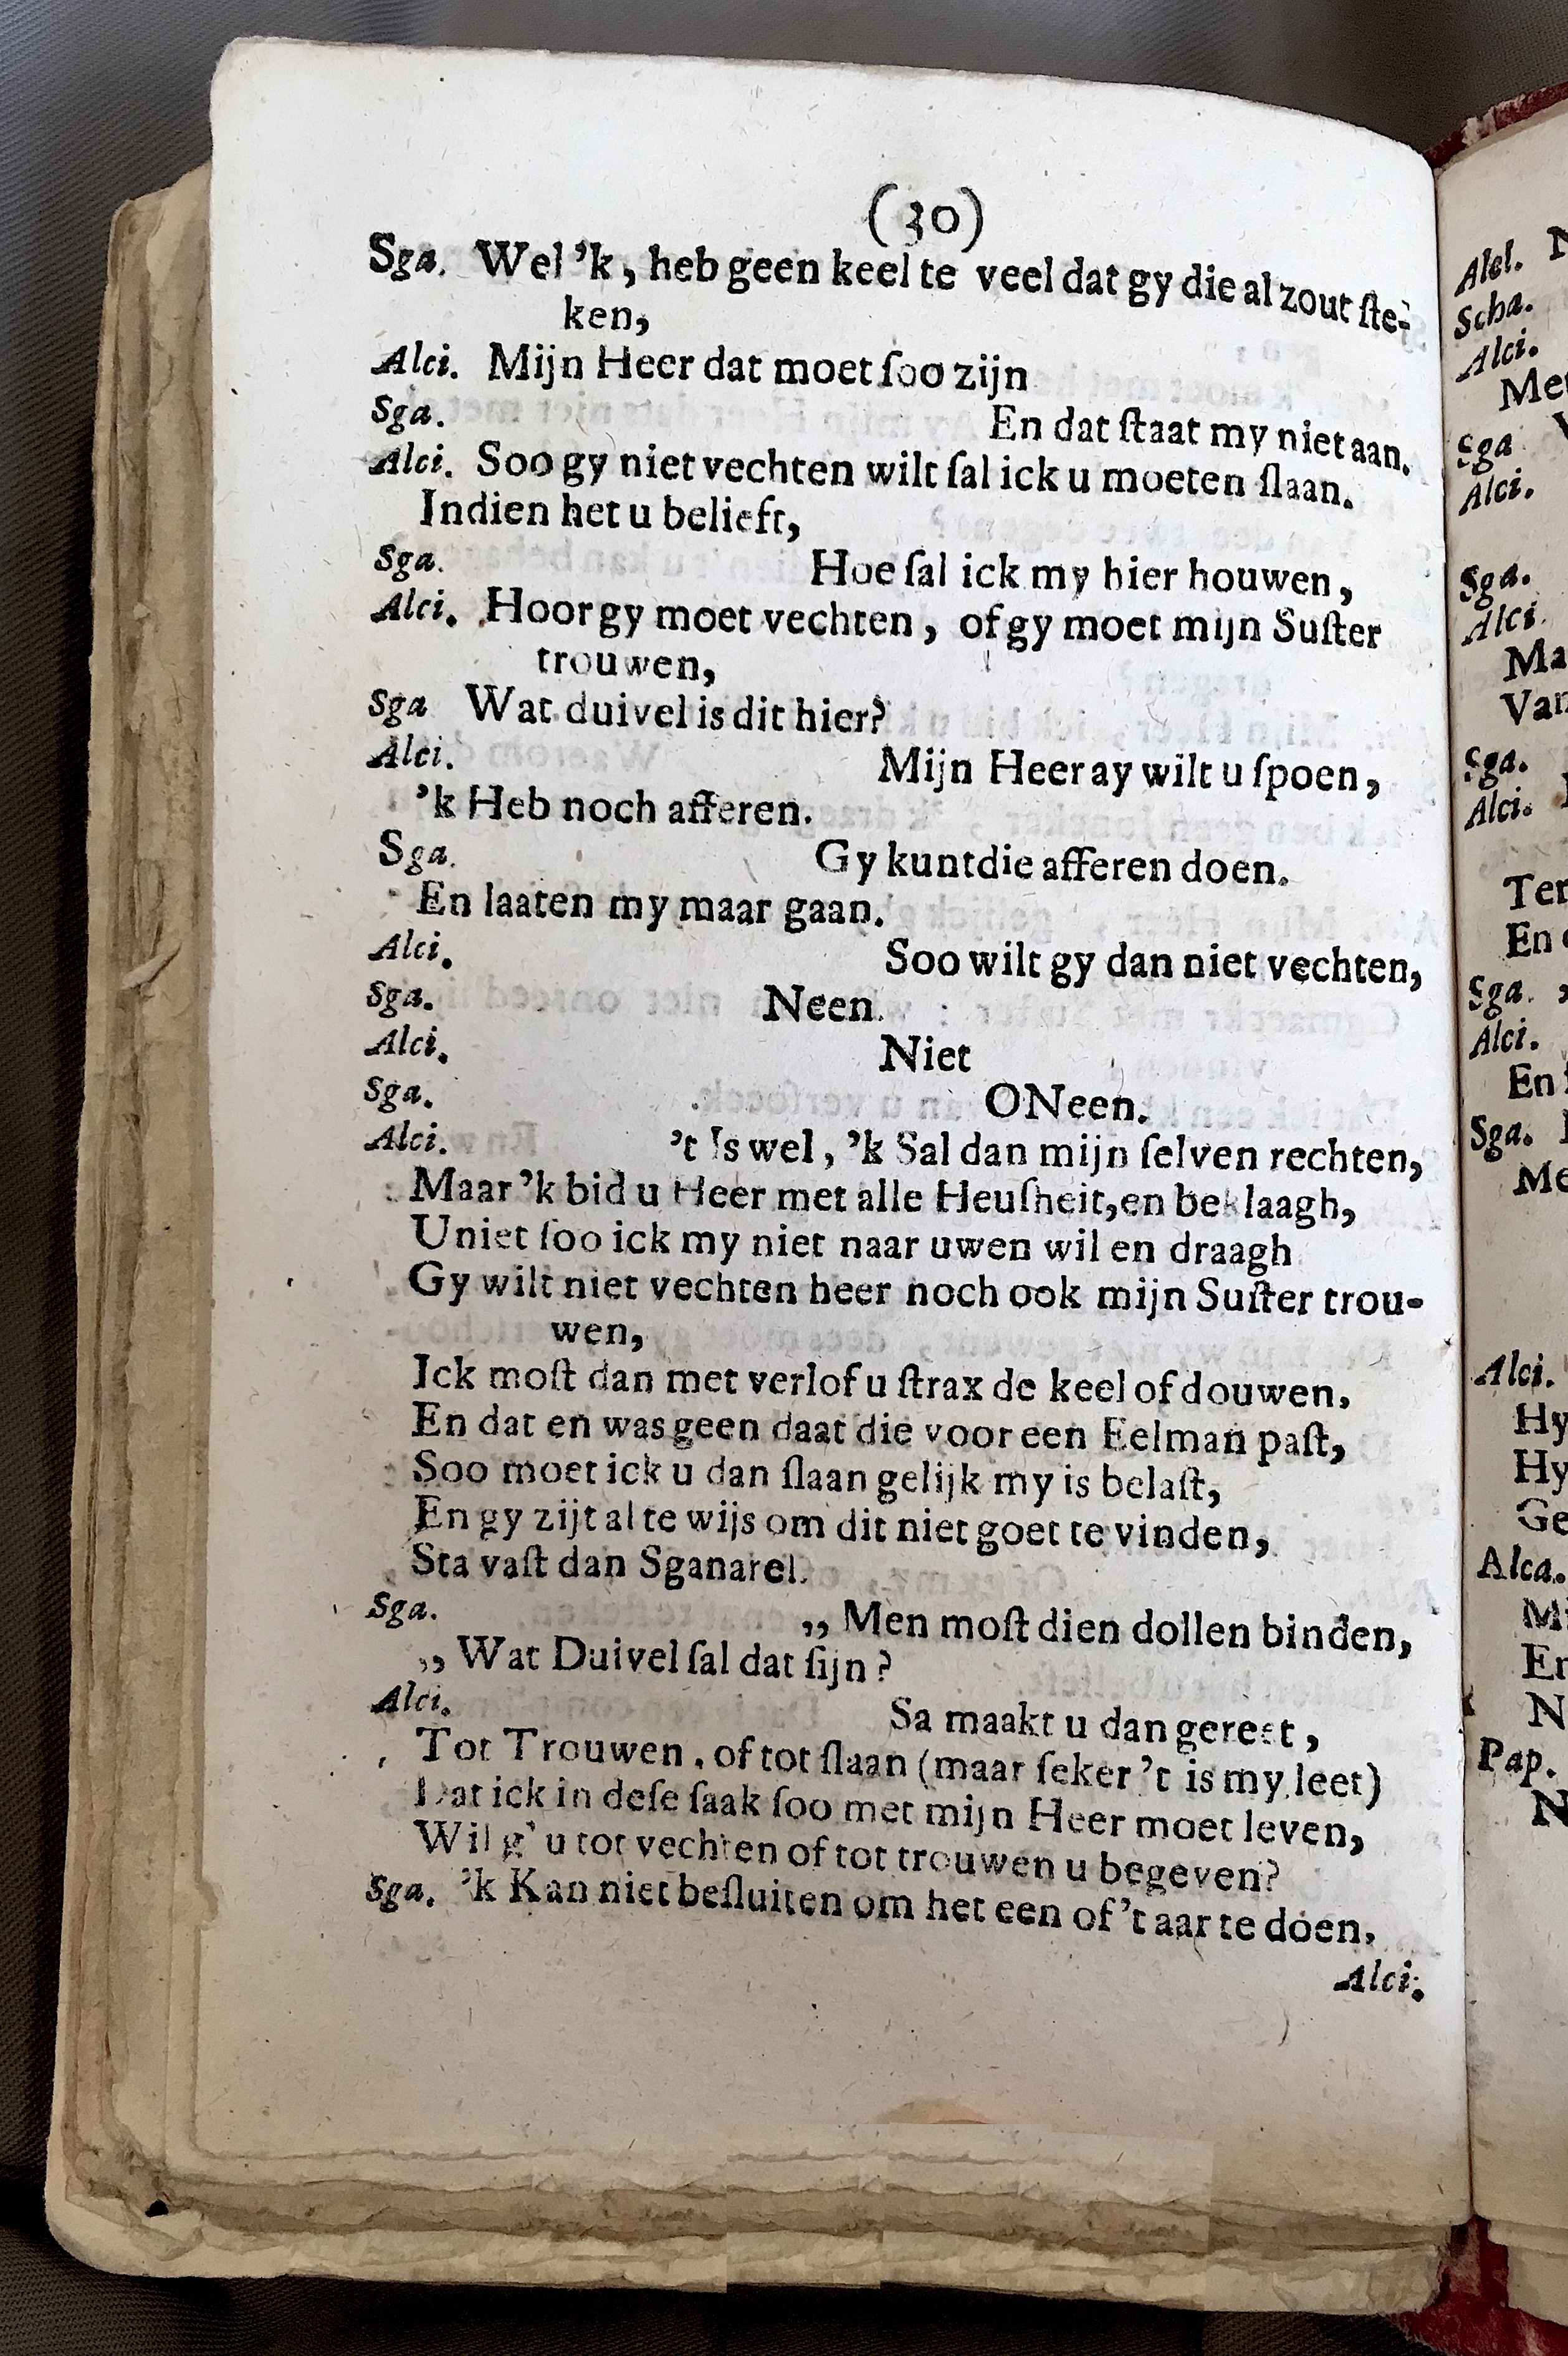 (30)
Sga. Wel 'k, heb geen keel te veel dat gy die al zout ſte-
ken,
Alci. Mijn Heer dat moet ſoo zijn
Sga. En dat ſtaat my niet aan.
Alci. Soo gy niet vechten wilt ſal ick u moeten ſlaan.
Indien het u belieft,
Sga. Hoe ſal ick my hier houwen,
Alci. Hoor gy moet vechten, of gy moet mijn Suſter
trouwen,
Sga Wat duivel is dit hier?
Alci. Mijn Heer ay wilt u ſpoen,
'k Heb noch afferen.
Sga. Gy kunt die afferen doen.
En laaten my maar gaan.
Alci. Soo wilt gy dan niet vechten,
Sga. Neen.
Alci. Niet
Sga. ONeen.
Alci. 't Is wel, 'k Sal dan mijn ſelven rechten,
Maar 'k bid u Heer met alle Heuſheit, en beklaagh,
Uniet ſoo ick my niet naar uwen wil en draagh
Gy wilt niet vechten heer noch ook mijn Suſter trou-
wen,
Ick moſt dan met verlof u ſtrax de keel of douwen,
En dat en was geen daat die voor een Eelman paſt,
Soo moet ick u dan ſlaan gelijk my is belaſt,
En gy zijt al te wijs om dit niet goet te vinden,
Sta vaſt dan Sganarel.
Sga. ,, Men moſt dien dollen binden,
,, Wat Duivel ſal dat ſijn?
Alci. Sa maakt u dan gereet,
Tot Trouwen, of tot ſlaan (maar ſeker 't is my leet)
Dat ick in deſe ſaak ſoo met mijn Heer moet leven,
Wil g' u tot vechten of tot trouwen u begeven?
Sga. 'k Kan niet beſluiten om het een of 't aar te doen,
Alci.
Alcl.
Scha.
Alci.
Sga
Alci.
Sga.
Alci.
Sga.
Alci.
Sga.
Alci.
Sga.
Alci.
Hy
Hy
Alca.
Pap.